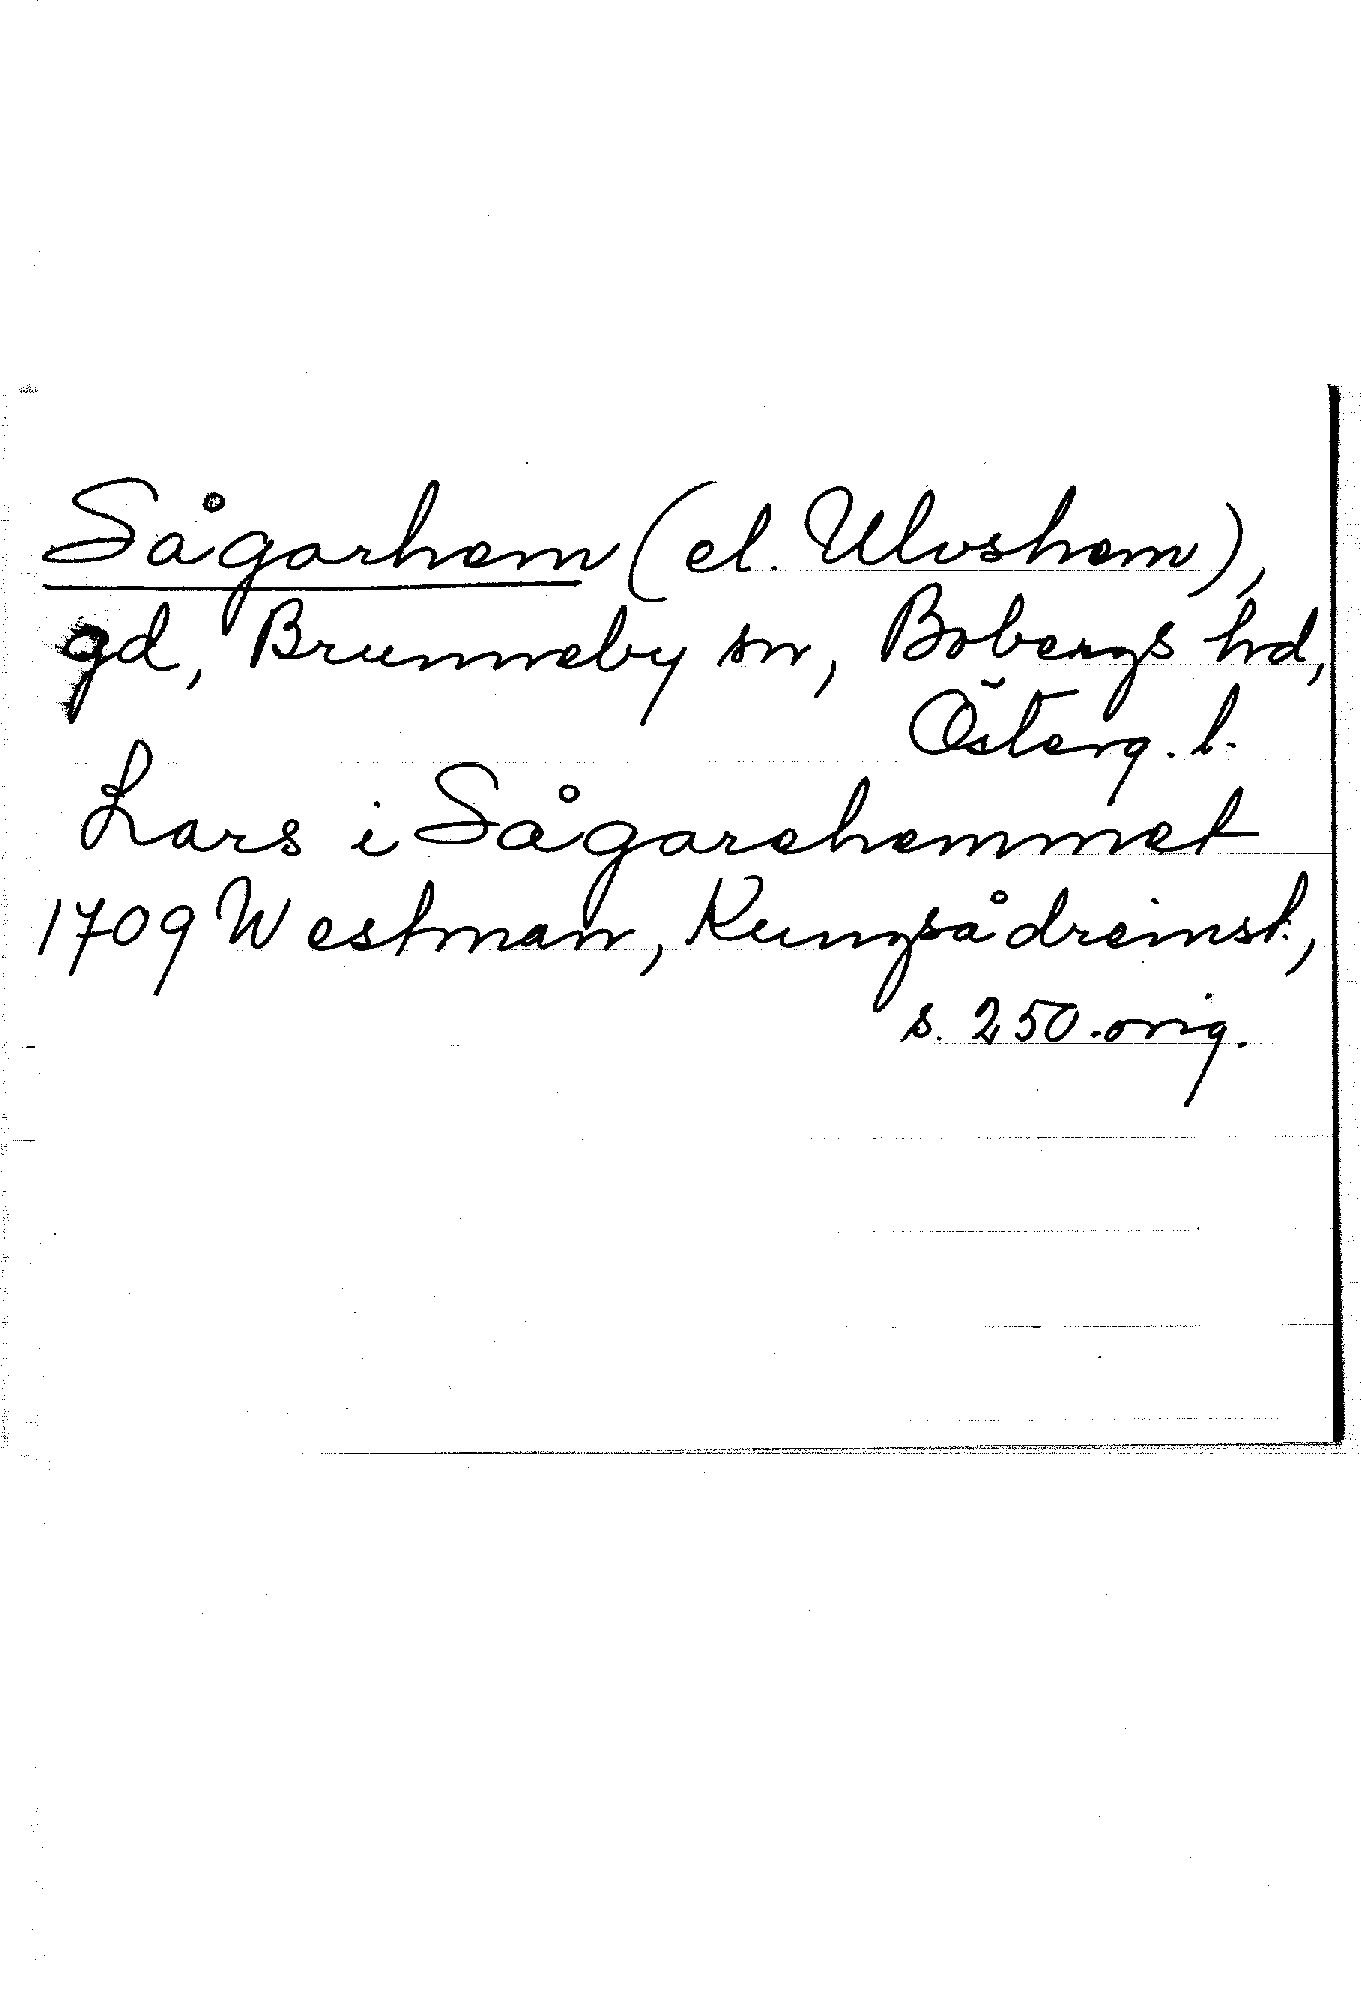 Sågarhem (el. Ulvshem),
gd, Brunneby sn, Bobergs hd,
Österg. l.
Lars i Sågarehemmet
1709 Westman, Kungsådreinst.,
s. 250. orig.